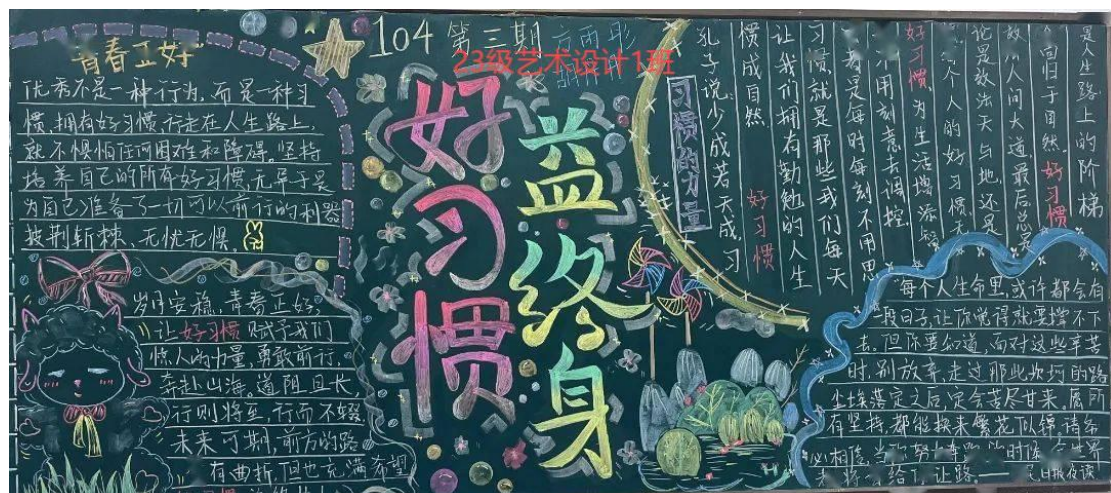 青春正好
优秀不是一种行为，而是一种习
惯，拥有好习惯，行走在人生路上，
就不惧怕任何困难和障碍。坚持
培养自己的所有好习惯，无异于是
为自己准备了一切可以前行的利器
披荆斩棘、无忧无惧。
岁月安稳，青春正好，
让好习惯赋予我们
惊人的力量，勇敢前行，
奔赴山海。道阻且长，
行则将至，行而不辍，
未来可期，前方的路
有曲折，但也充满希望
104 第三期
23级艺术设计1班
好习惯
益终身
习惯的力量
孔子说：少成若天成，习
惯成自然。好习惯
让我们拥有勤勉的人生
习惯，就是那些我们每天
者是每时每刻不用思
用刻意去调控，
好习惯，为生活增添
个人的好习惯，
论是效法天与地，还是
人间大道最后总是
归于自然。好习惯
是人生路上的阶梯
每个人生命里，或许都会有
一段日子，让你觉得就要撑不下
去。但你要知道，面对这些辛苦
时，别放弃，走过那些坎坷的路
尘埃落定之后，定会苦尽甘来，属所
有坚持都能换来繁花似锦，请务
必相信，当你努力
未将会给你让路。